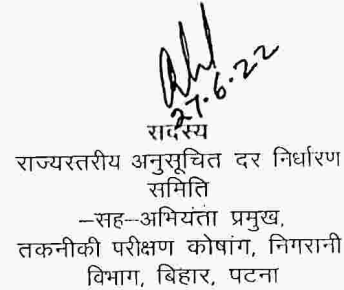 27.6.22
सदस्य
राज्यस्तरीय अनुसूचित दर निर्धारण
समिति
–सह–अभियंता प्रमुख,
तकनीकी परीक्षण कोषांग, निगरानी
विभाग, बिहार, पटना